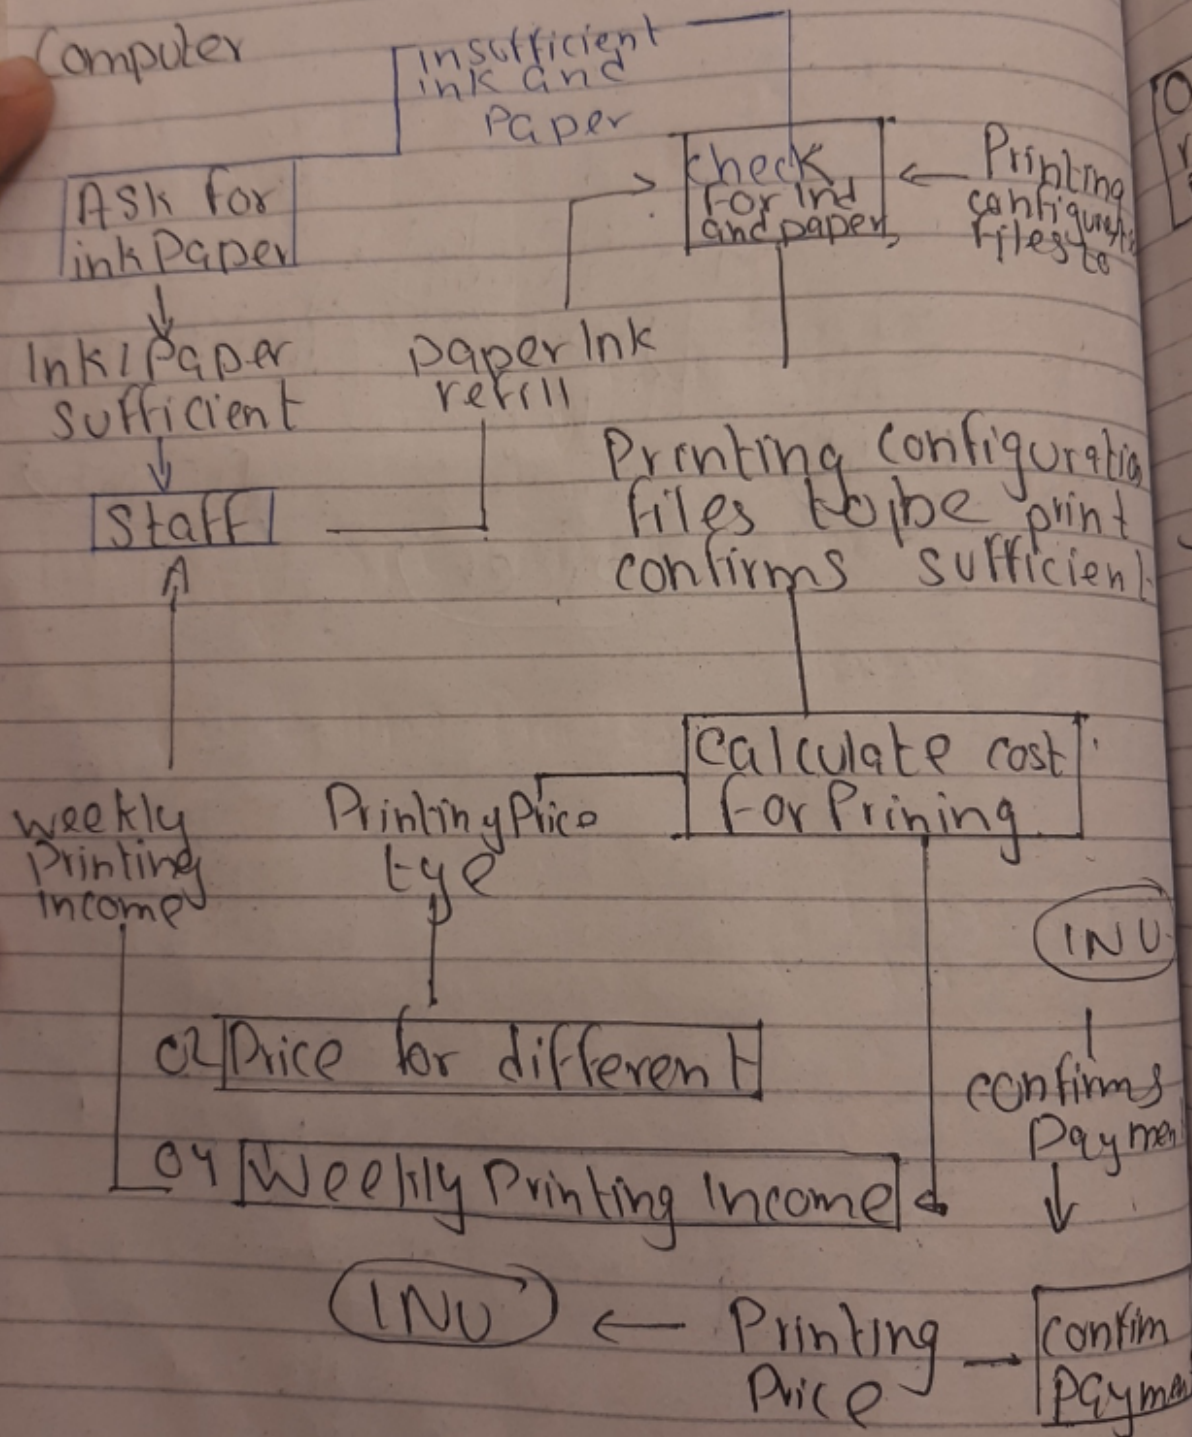 Computer
insufficient
ink and
Paper
Ask for
ink Paper
check
for Ind
and paper,
Printing
configuratio
files to
Ink / Paper
sufficient
paper Ink
refill
Staff
Printing configuratio
files to be print
confirms sufficient
Calculate cost
for Prining
weekly
Printing
income
Printing Price
tye
INU
02 Price for different
confirms
Paymen
04 Weekly Printing Income
INU
Printing
Price
Confim
Paymen